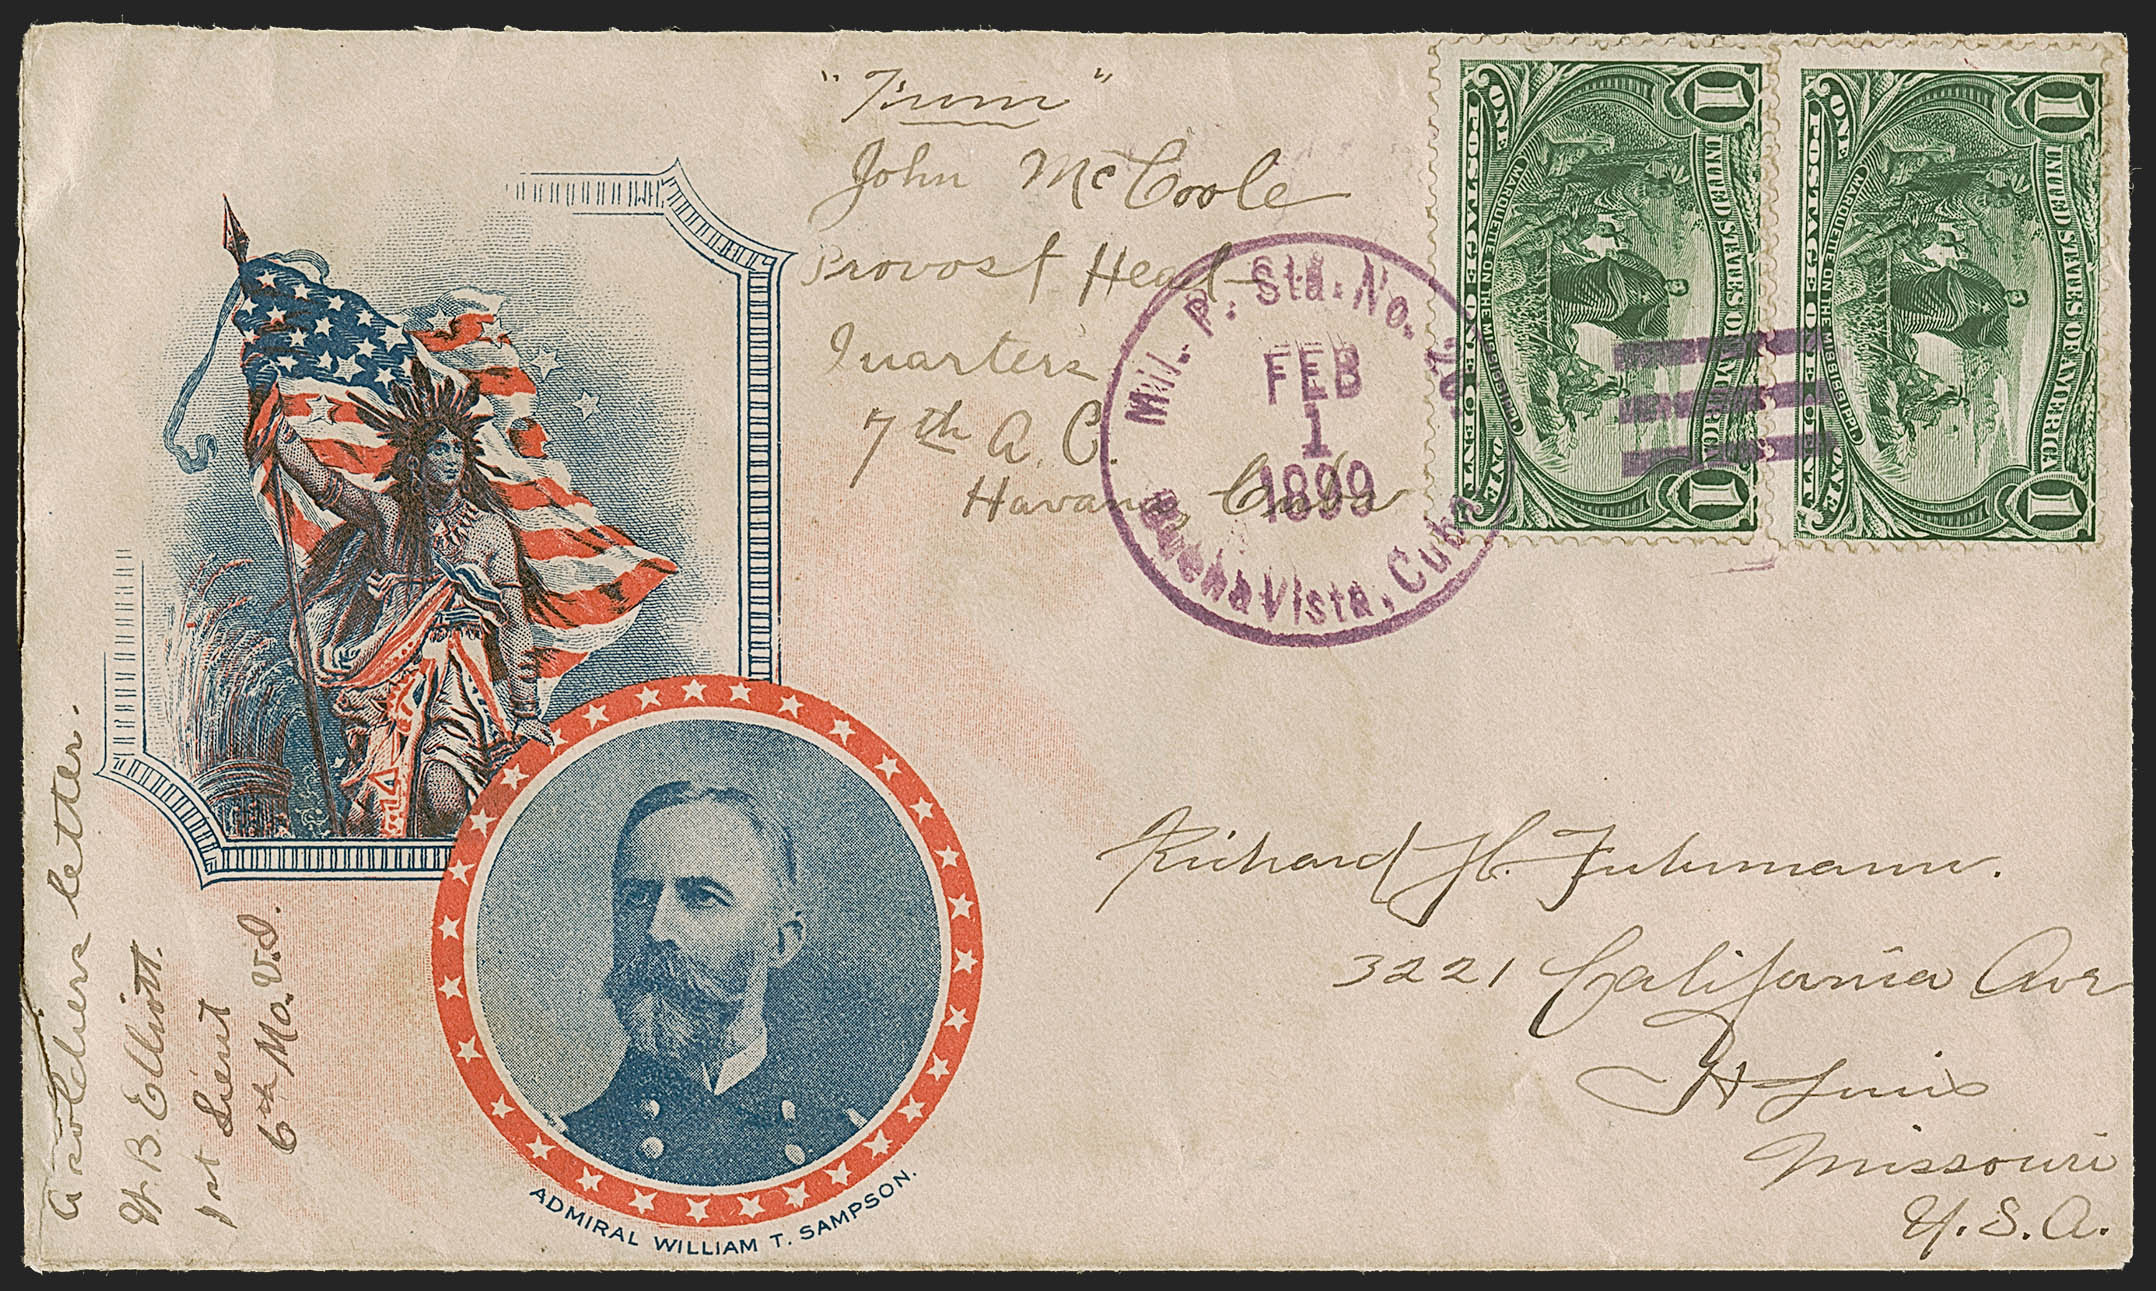 "From"
John McCoole
Provost Head-
Quarters
7th A. C.
Havana, Cuba
Mil. P. Sta. No.
FEB
1
1899
Buena Vista, Cuba
1 UNITED STATES OF AMERICA 1
MARQUETTE ON THE MISSISSIPPI.
ONE POSTAGE ONE CENT ONE
1 UNITED STATES OF AMERICA 1
MARQUETTE ON THE MISSISSIPPI.
ONE POSTAGE ONE CENT ONE
Richard H. Fuhrmann.
3221 California Ave
St Louis
Missouri
U. S. A.
a soldiers letter.
W. B. Elliott.
1st Lieut
6th Mo. V.I.
ADMIRAL WILLIAM T. SAMPSON.